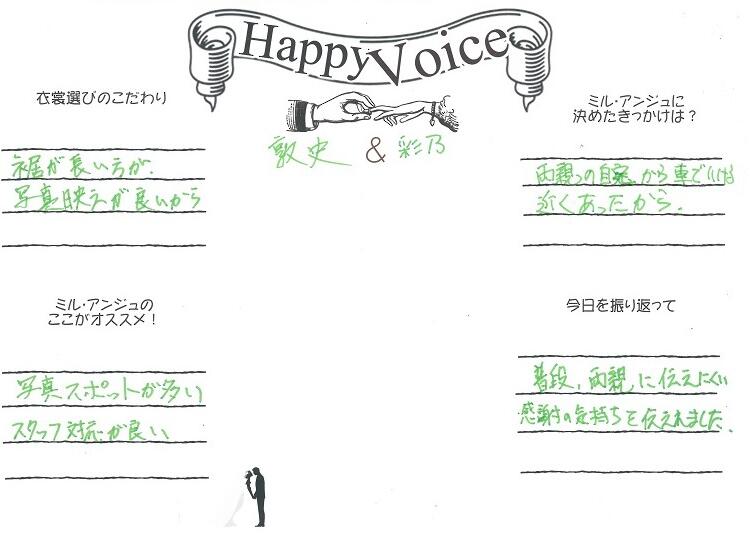 Happy Voice
敦史 & 彩乃
衣裳選びのこだわり
裾が長い方が、
写真映えが良いから
ミル・アンジュに
決めたきっかけは？
両親の自家から車でいける
近くあったから。
ミル・アンジュの
ここがオススメ！
写真スポットが多い
スタッフ対応が良い
今日を振り返って
普段、両親に伝えにくい
感謝の気持ちを伝えれました。